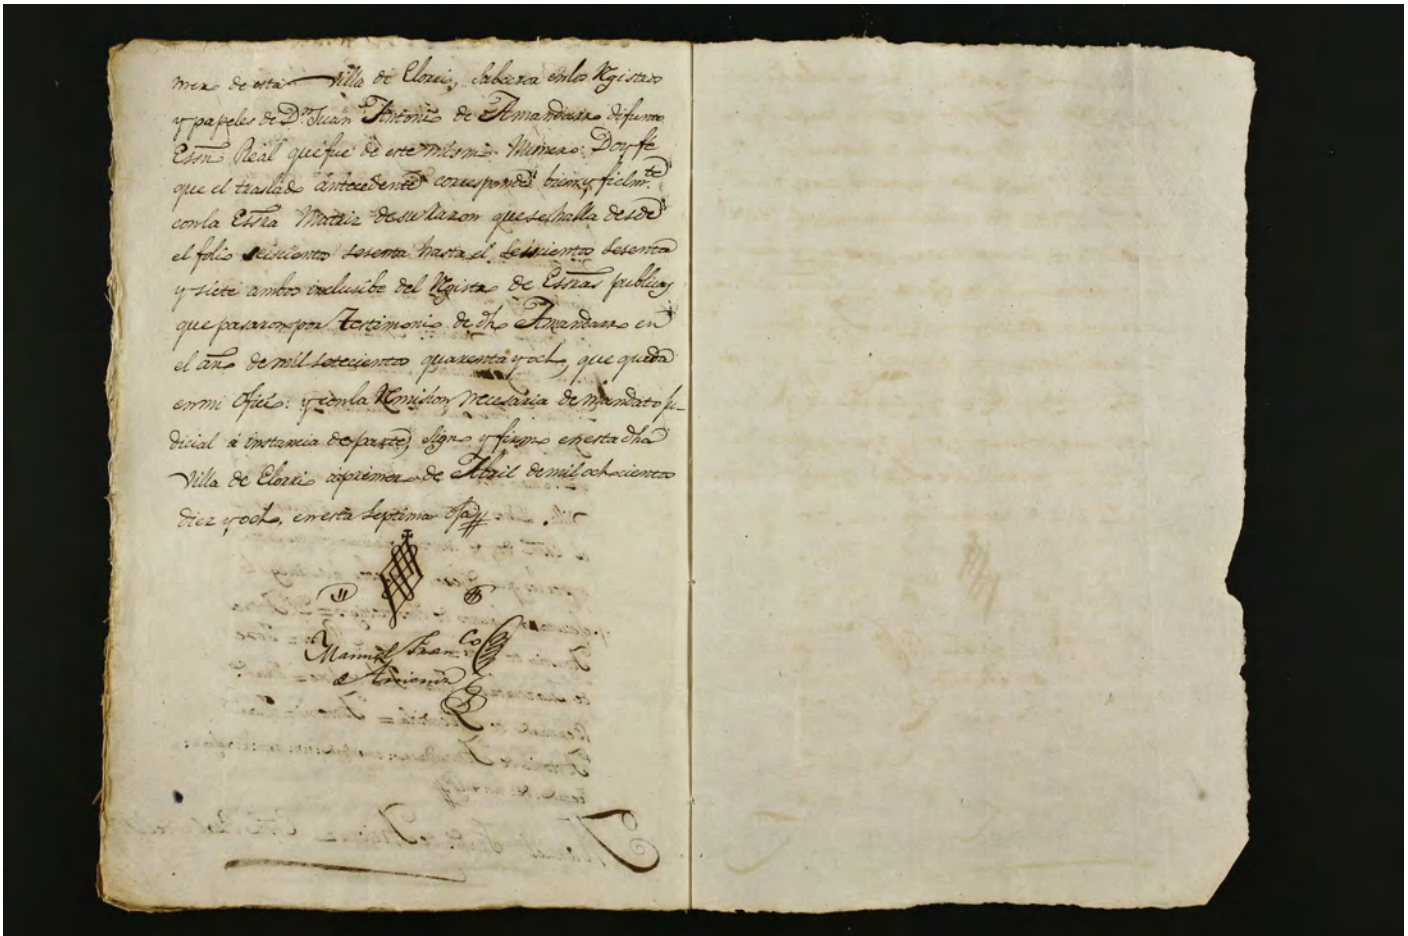 mero de esta Villa de Elorrio, subcesor en los Registros
y papeles de Dn. Juan Antonio de Amandarro difunto
Essno Real que fue de este mismo Numero: Doy fé
que el traslado antecedente corresponde bien, y fielmte.
con la Essra Matriz de su razon que se halla desde
el folio seiscientos sesenta hasta el seiscientos sesenta
y siete ambos inclusibe del Registro de Essras publicas
que pasaron por Testimonio de dho Amandarro en
el año de mil setecientos quarenta y ocho, que queda
en mi Oficio: y con la Remision necesaria de mandato ju-
dicial á instancia de parte, signo y firmo en esta dha
Villa de Elorrio á primero de Abril de mil ochocientos
diez y ocho, en esta septima oja
Manuel Franco
de